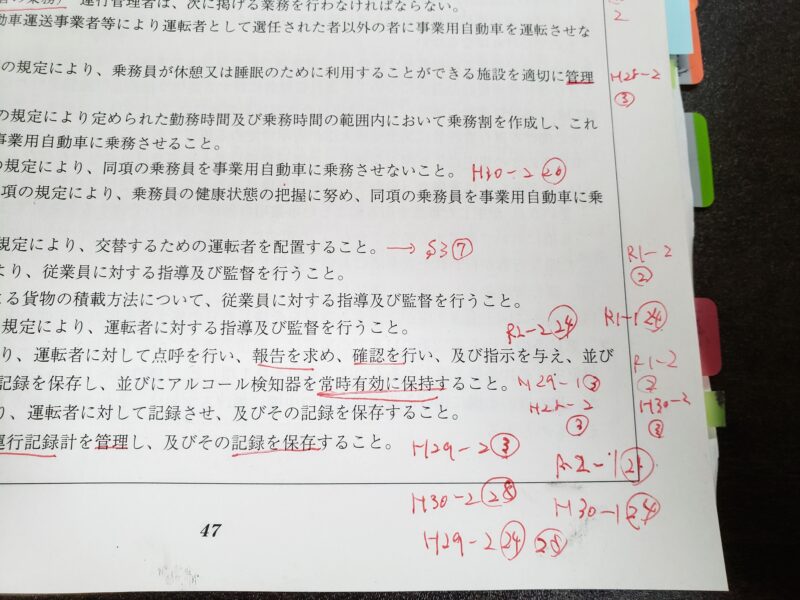 運行管理者は、次に掲げる業務を行わなければならない。
動車運送事業者等により運転者として選任された者以外の者に事業用自動車を運転させな
2
の規定により、乗務員が休憩又は睡眠のために利用することができる施設を適切に管理
H28-2
③
の規定により定められた勤務時間及び乗務時間の範囲内において乗務割を作成し、これ
事業用自動車に乗務させること。
の規定により、同項の乗務員を事業用自動車に乗務させないこと。 H30-2 ⑳
項の規定により、乗務員の健康状態の把握に努め、同項の乗務員を事業用自動車に乗
規定により、交替するための運転者を配置すること。 → §3⑦
R1-2
②
より、従業員に対する指導及び監督を行うこと。
よる貨物の積載方法について、従業員に対する指導及び監督を行うこと。
規定により、運転者に対する指導及び監督を行うこと。
R2-2 ㉔ R1-1 ㉔
り、運転者に対して点呼を行い、報告を求め、確認を行い、及び指示を与え、並び
R1-2
記録を保存し、並びにアルコール検知器を常時有効に保持すること。 H29-1 ③
り、運転者に対して記録させ、及びその記録を保存すること。
H28-2
③
H30-2
③
運行記録計を管理し、及びその記録を保存すること。
H29-2 ③
H30-2 ㉘
H30-1 ㉔
H29-2 ㉔ ㉘
47